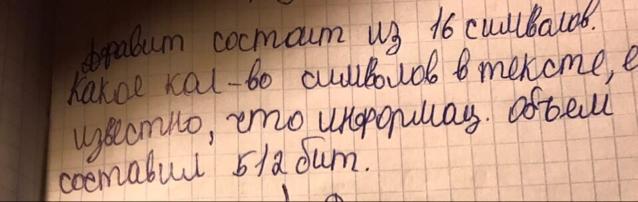 фавит состоит из 16 символов.
Какое кол-во символов в тексте, е
известно, что информац. объем
составил 512 бит.